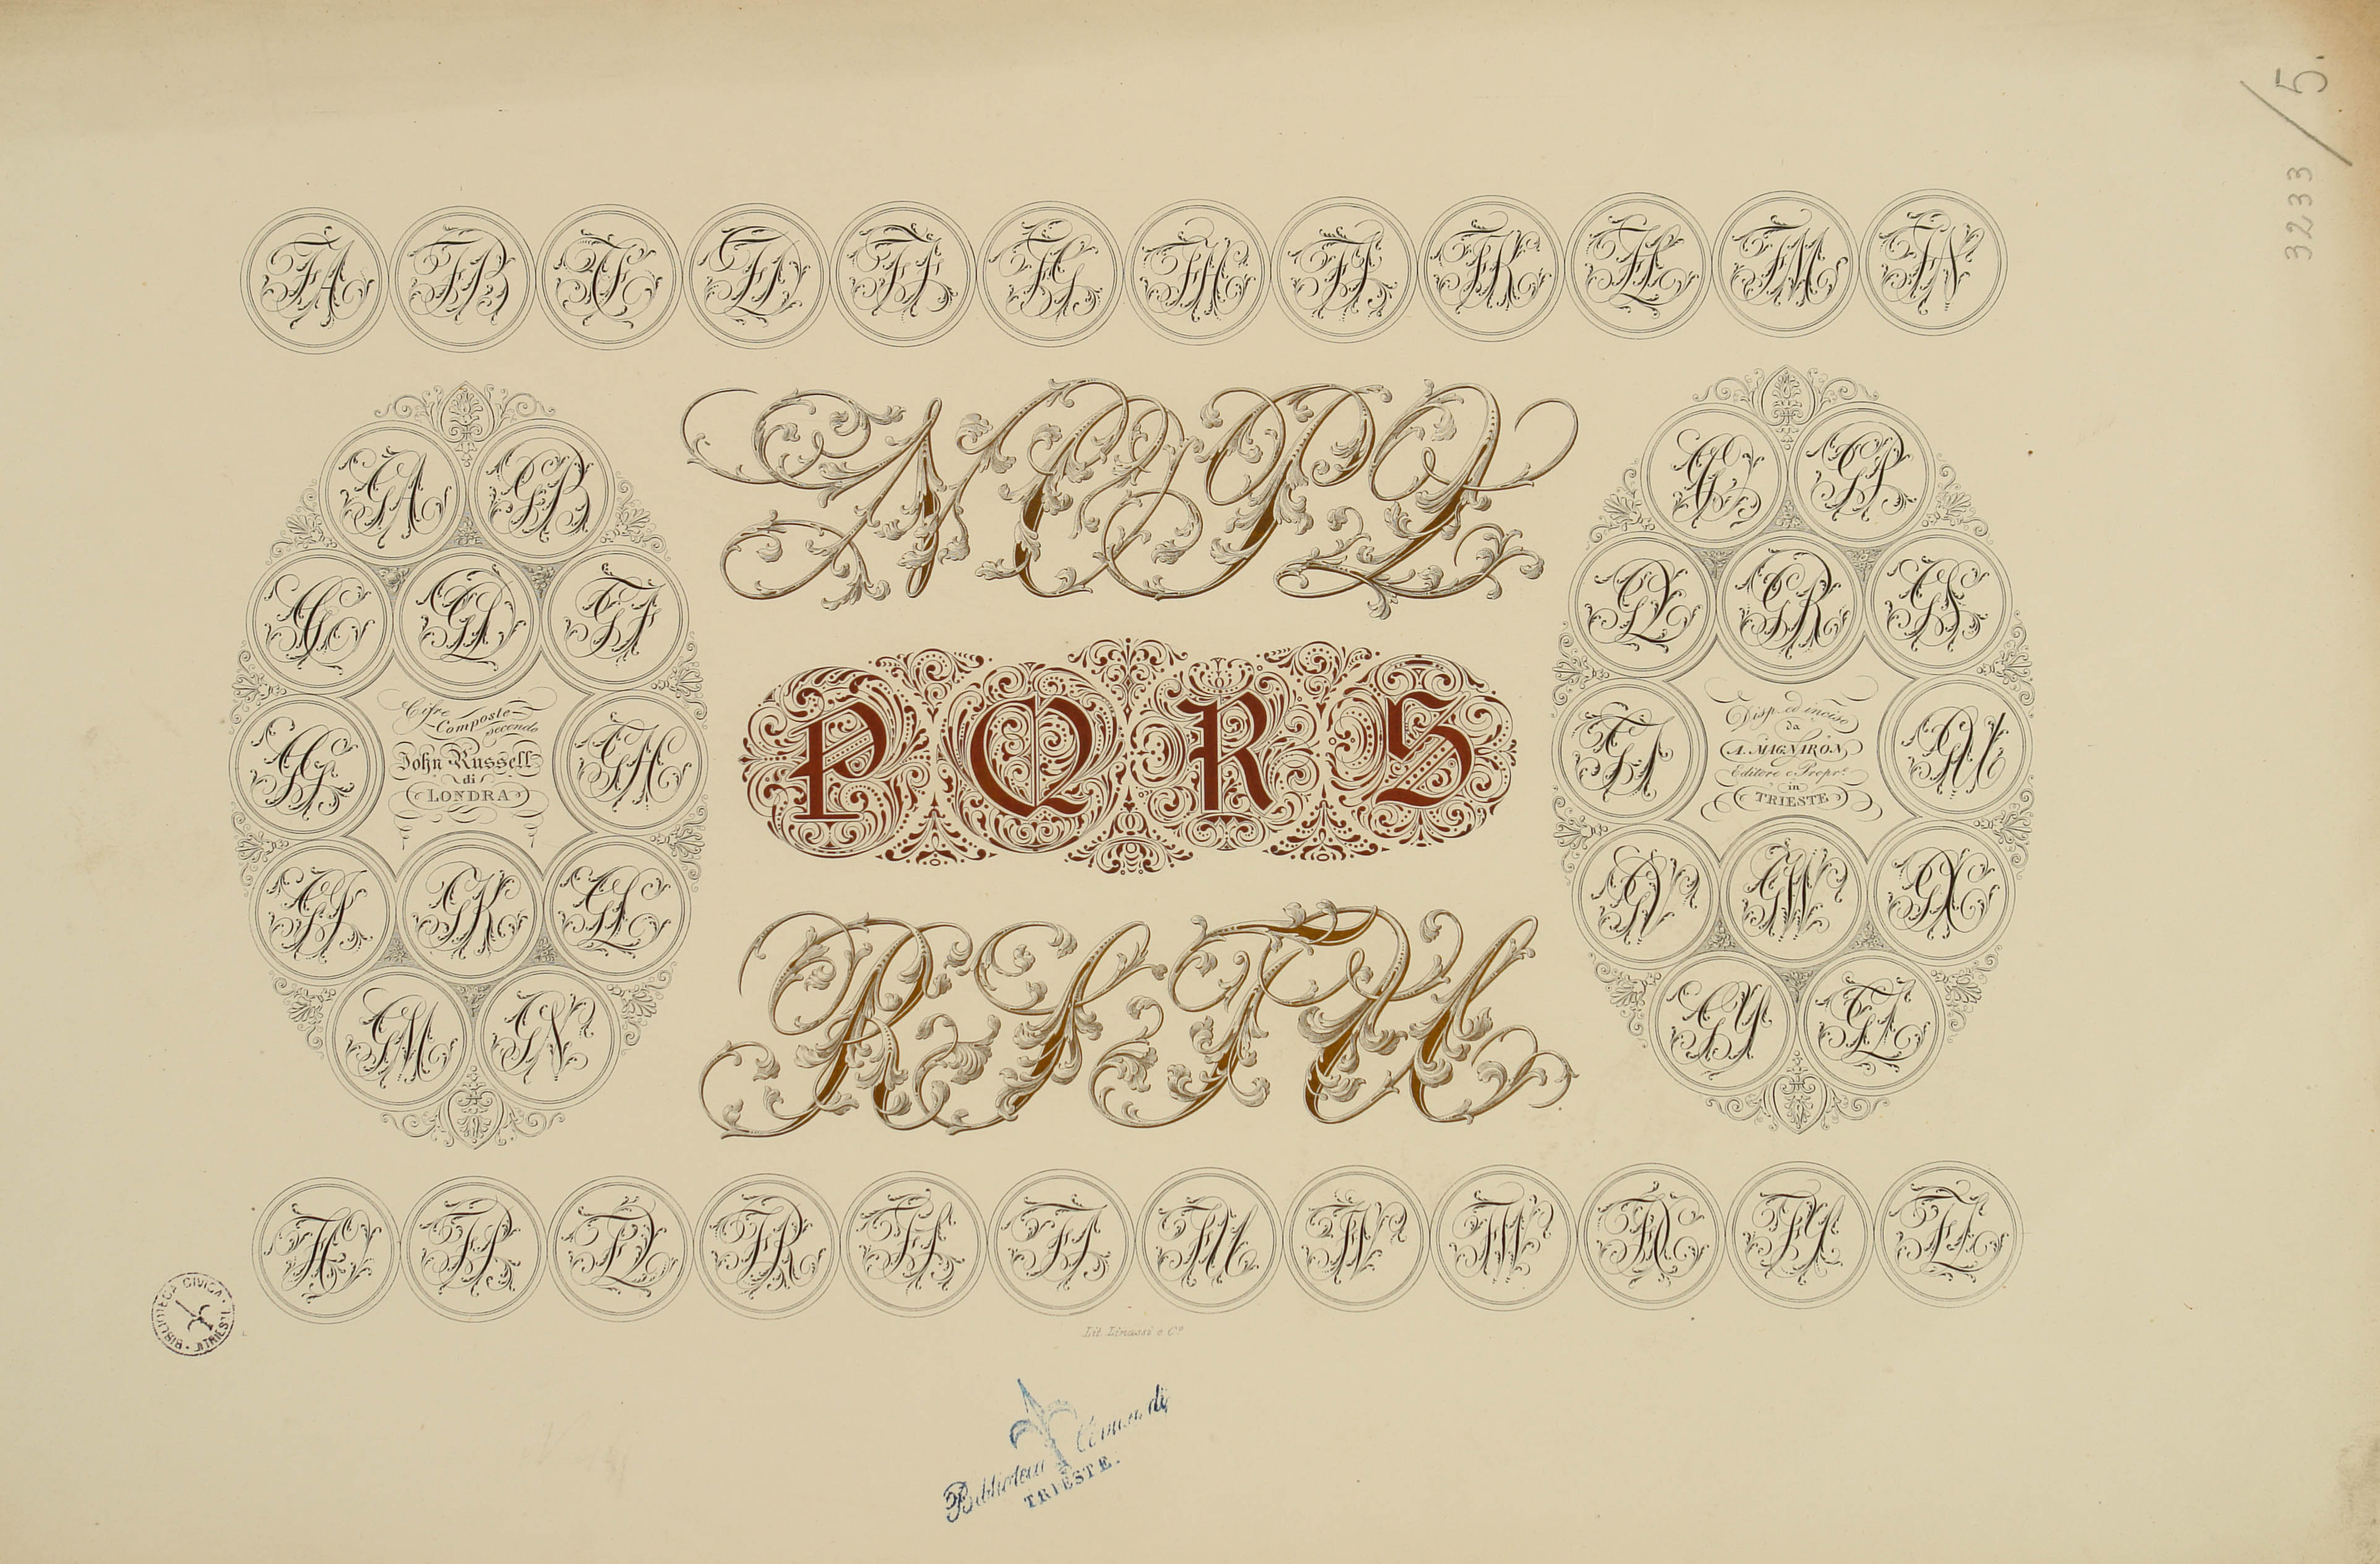 3233/5.
FA FB FC FD FF FG FH FI FK FL FM FN
N O P Q
GA GB
GC GD GF
GG GH
GI GK GL
GM GN
Cifre
Composte
secondo
John Russell
di
LONDRA
P Q R S
GO GP
GQ GR GS
GT GU
GV GW GX
GY GZ
Disp. ed inciso
da
A. MAGNARON
Editore e Propr.
in
TRIESTE
R S T U
FO FP FQ FR FS FT FU FV FW FX FY FZ
Lit. Linassi e C.º
BIBLIOTECA CIVICA · TRIESTE
Biblioteca Comun. di
TRIESTE.